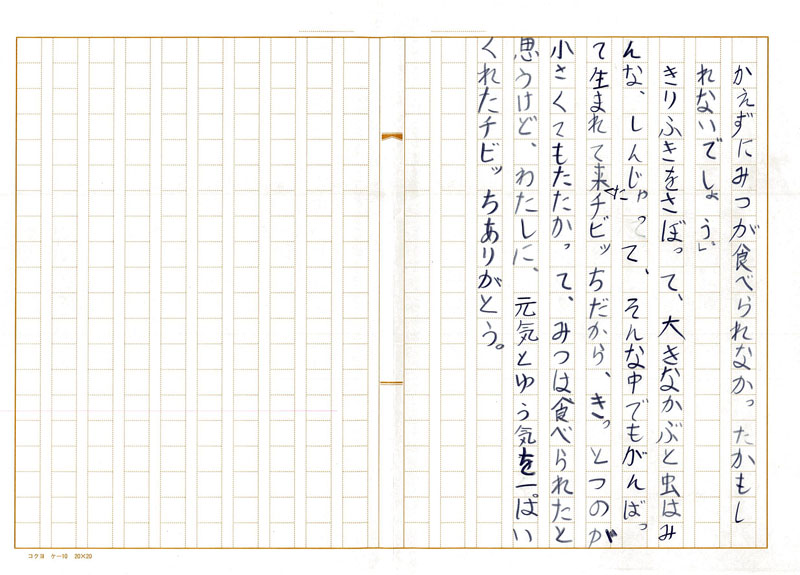 かえずにみつが食べられなかったかもし
れないでしょう。」
きりふきをさぼって、大きなかぶと虫はみ
んな、しんじゃって、そんな中でもがんばっ
て生まれて来たチビッちだから、きっとつのが
小さくてもたたかって、みつは食べられたと
思うけど、わたしに、元気とゆう気を一ぱい
くれたチビッちありがとう。
コクヨ ケー10 20×20